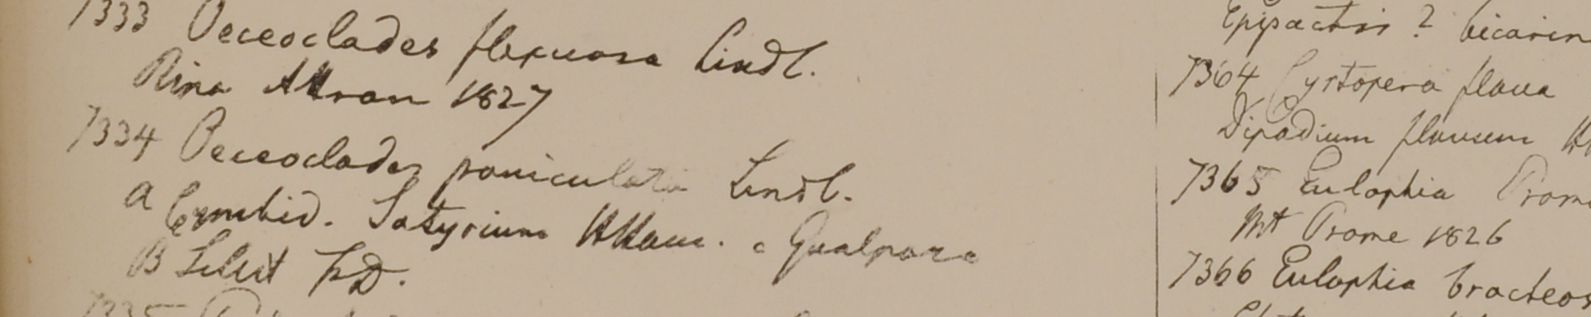 7333 Oeceoclades flexuosa Lindl.
Ripa Attran 1827
7334 Oeceoclades paniculata Lindl.
a Cymbid. Satyrium HHam. e Gualpara
B Silhet FD.
7335
Epipactis ? bicarin
7364 Cyrtopera flava
Dipodium flavum
7365 Eulophia Prome
Mt Prome 1826
7366 Eulophia bracteos